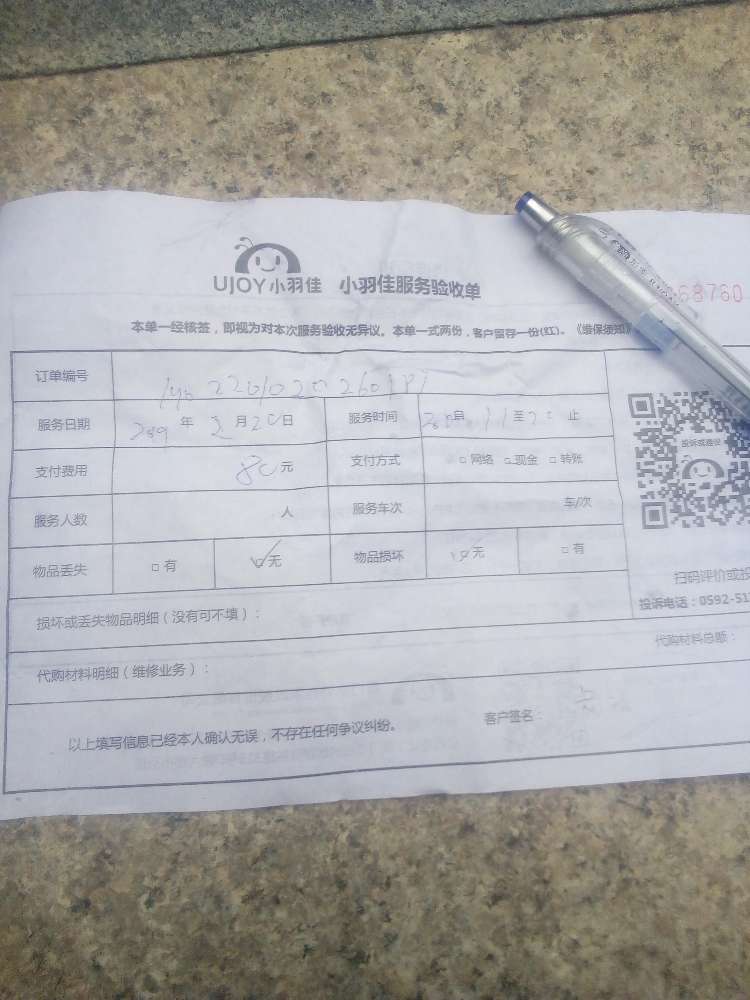 UJOY小羽佳 小羽佳服务验收单
68760
本单一经核签，即视为对本次服务验收无异议。本单一式两份，客户留存一份(红)。《维保须知》
订单编号
服务日期 年 2 月 20 日 服务时间 自 至 止
支付费用 80 元 支付方式 □ 网络 □ 现金 □ 转账
投诉或建议
服务人数 人 服务车次 车/次
物品丢失 □ 有 □ 无 物品损坏 □ 无 □ 有
扫码评价或投
投诉电话：0592-51
损坏或丢失物品明细（没有可不填）：
代购材料明细（维修业务）： 代购材料总额：
以上填写信息已经本人确认无误，不存在任何争议纠纷。 客户签名：